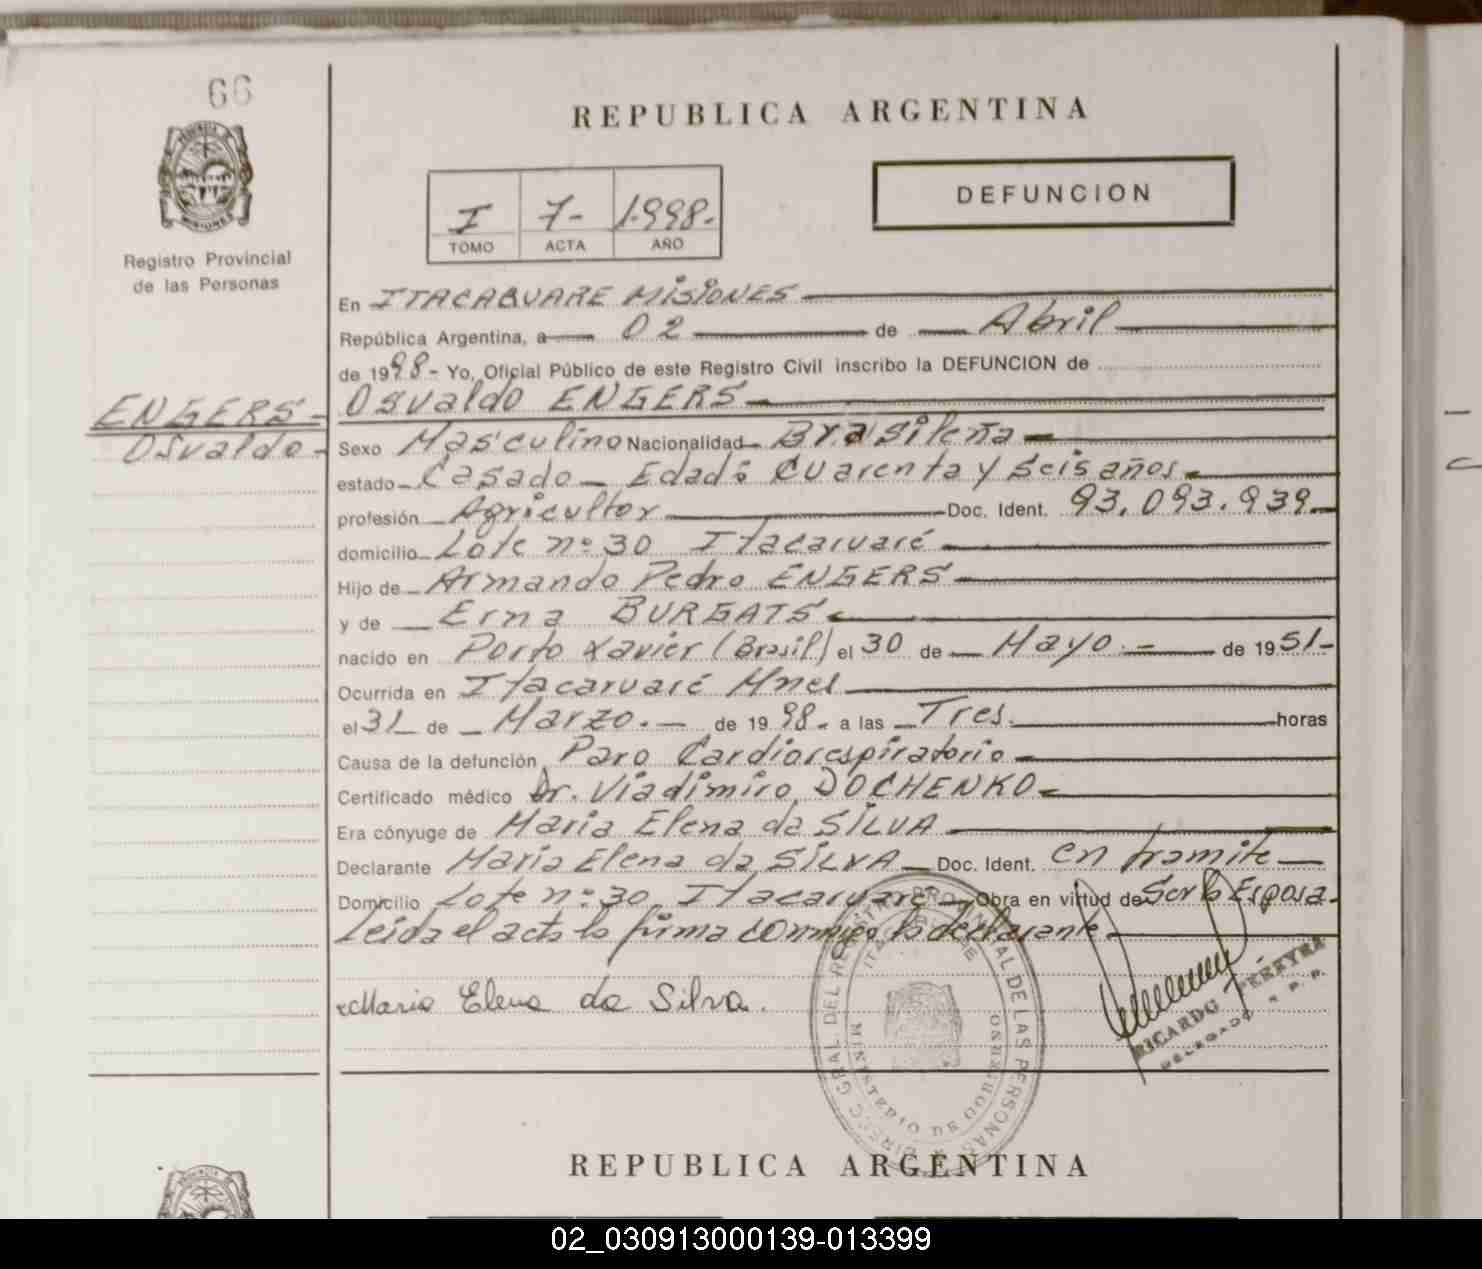 66
Registro Provincial
de las Personas
REPUBLICA ARGENTINA
I 7- 1.998.-
TOMO ACTA AÑO
DEFUNCION
En ITACARUARE MISIONES
República Argentina, a 02 de Abril
de 1998- Yo, Oficial Público de este Registro Civil inscribo la DEFUNCION de
ENGERS-
Osvaldo-
Osvaldo ENGERS
Sexo Masculino Nacionalidad Brasileña
estado Casado - Edad: Cuarenta y seis años
profesión Agricultor Doc. Ident. 93.093.939
domicilio Lote nº 30 Itacaruaré
Hijo de Armando Pedro ENGERS
y de Erna BURGATS
nacido en Porto Xavier (Brasil) el 30 de Mayo.- de 1951-
Ocurrida en Itacaruaré Mnes
el 31 de Marzo.- de 1998.- a las Tres. horas
Causa de la defunción Paro Cardiorespiratorio
Certificado médico Dr. Vladimiro DOCHENKO
Era cónyuge de Maria Elena da SILVA
Declarante Maria Elena da SILVA Doc. Ident. en tramite
Domicilio Lote nº 30 Itacaruaré Obra en virtud de Ser la Esposa.
Leida el acta la firma conmigo la declarante
Maria Elena da Silva.
DIRECC. GRAL. DEL REGISTRO PROVINCIAL DE LAS PERSONAS
MINISTERIO DE GOBIERNO
RICARDO PEREYRA
DELEGADO R. P. P.
REPUBLICA ARGENTINA
02_030913000139-013399